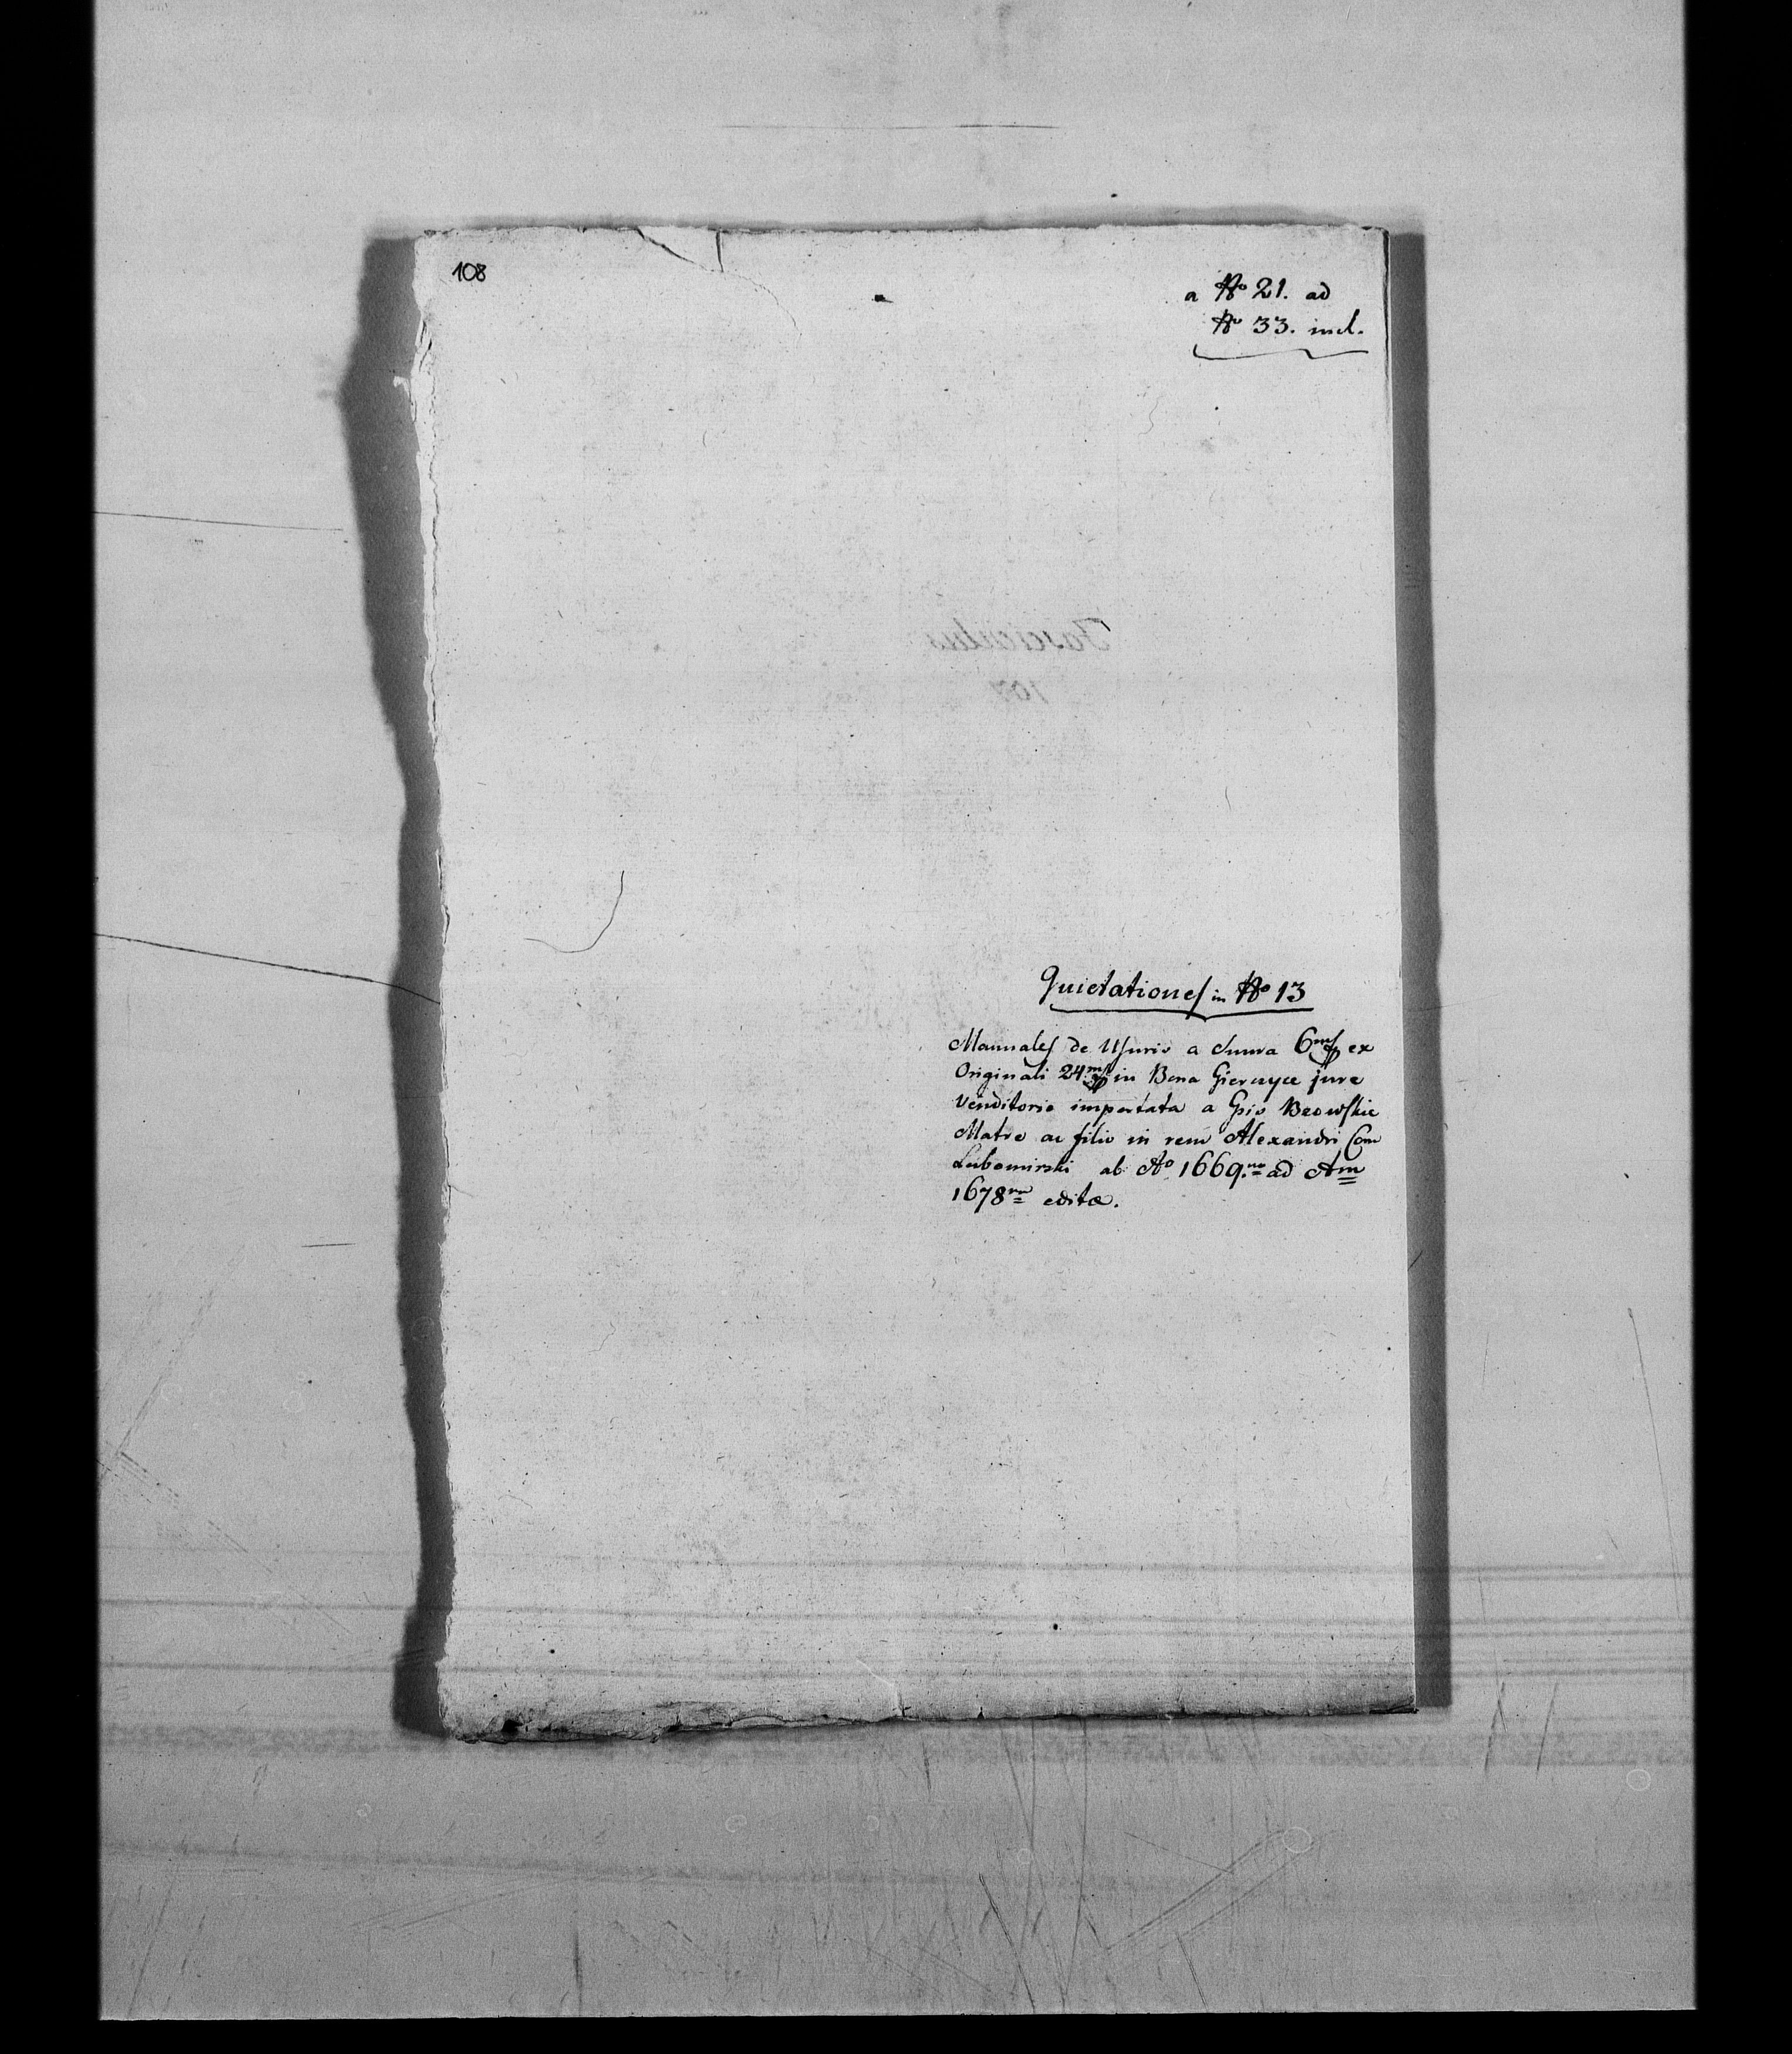 108
a No 21. ad
No 33. incl.
Quietationes in No 13
Manuales de Usurio a Suma 6m ex
Originali 24m in Bona Giercyce jure
Venditorio importata a Gsio Brzowskie
Matre ac filio in rem Alexandri Com
Lubomirski ab Ao 1669.no ad Am
1678m editæ.
Fasciculus
107